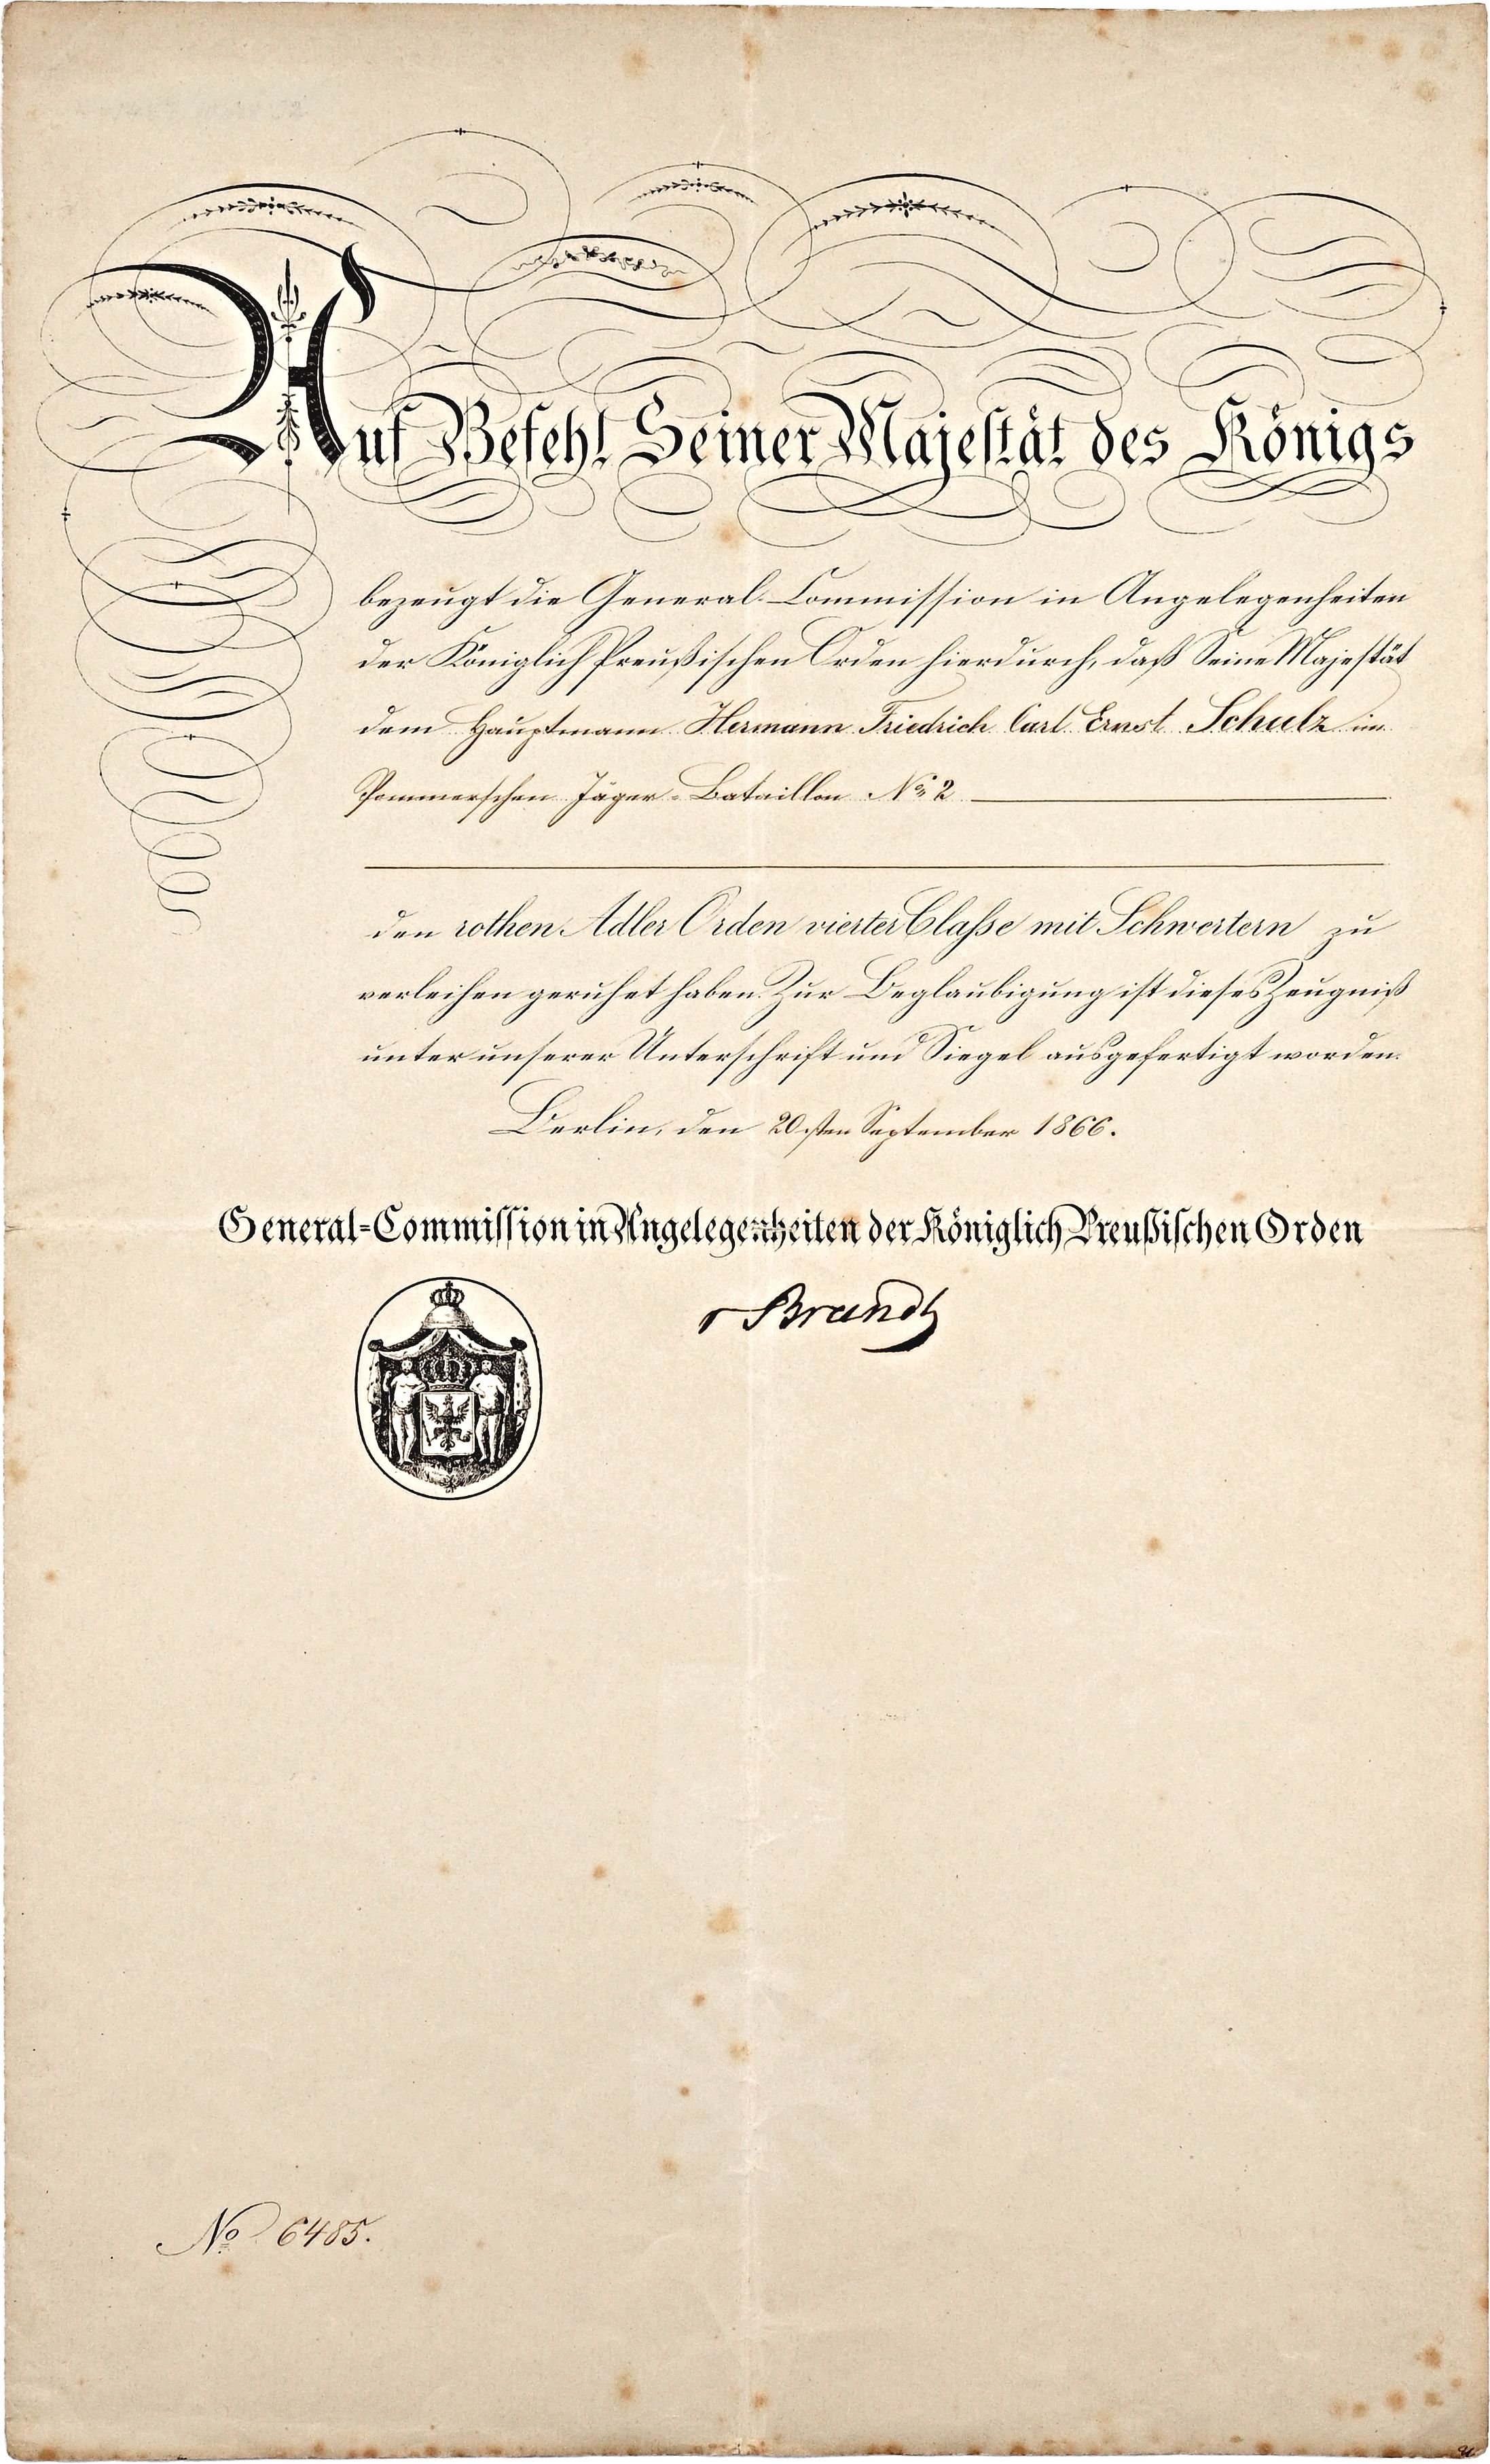 Auf Befehl Seiner Majestät des Königs
bezeugt die General-Commission in Angelegenheiten
der Königlich Preußischen Orden hierdurch, daß Seine Majestät
dem Hauptmann Hermann Friedrich Carl Ernst Schulz im
Pommerschen Jäger-Bataillon No 2
den rothen Adler Orden vierter Classe mit Schwertern zu
verleihen geruhet haben. Zur Beglaubigung ist dieses Zeugniß
unter unserer Unterschrift und Siegel ausgefertigt worden.
Berlin, den 20sten September 1866.
General-Commission in Angelegenheiten der Königlich Preußischen Orden
v Brandt
No 6485.